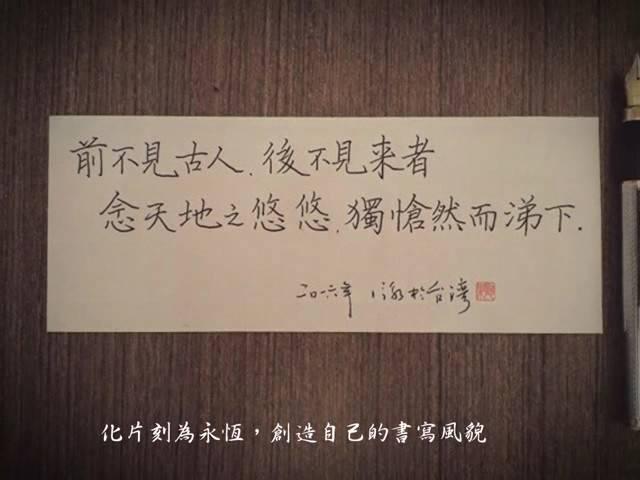 前不見古人.後不見来者
念天地之悠悠.獨愴然而涕下.
二〇一六年 於台湾
化片刻為永恆，創造自己的書寫風貌